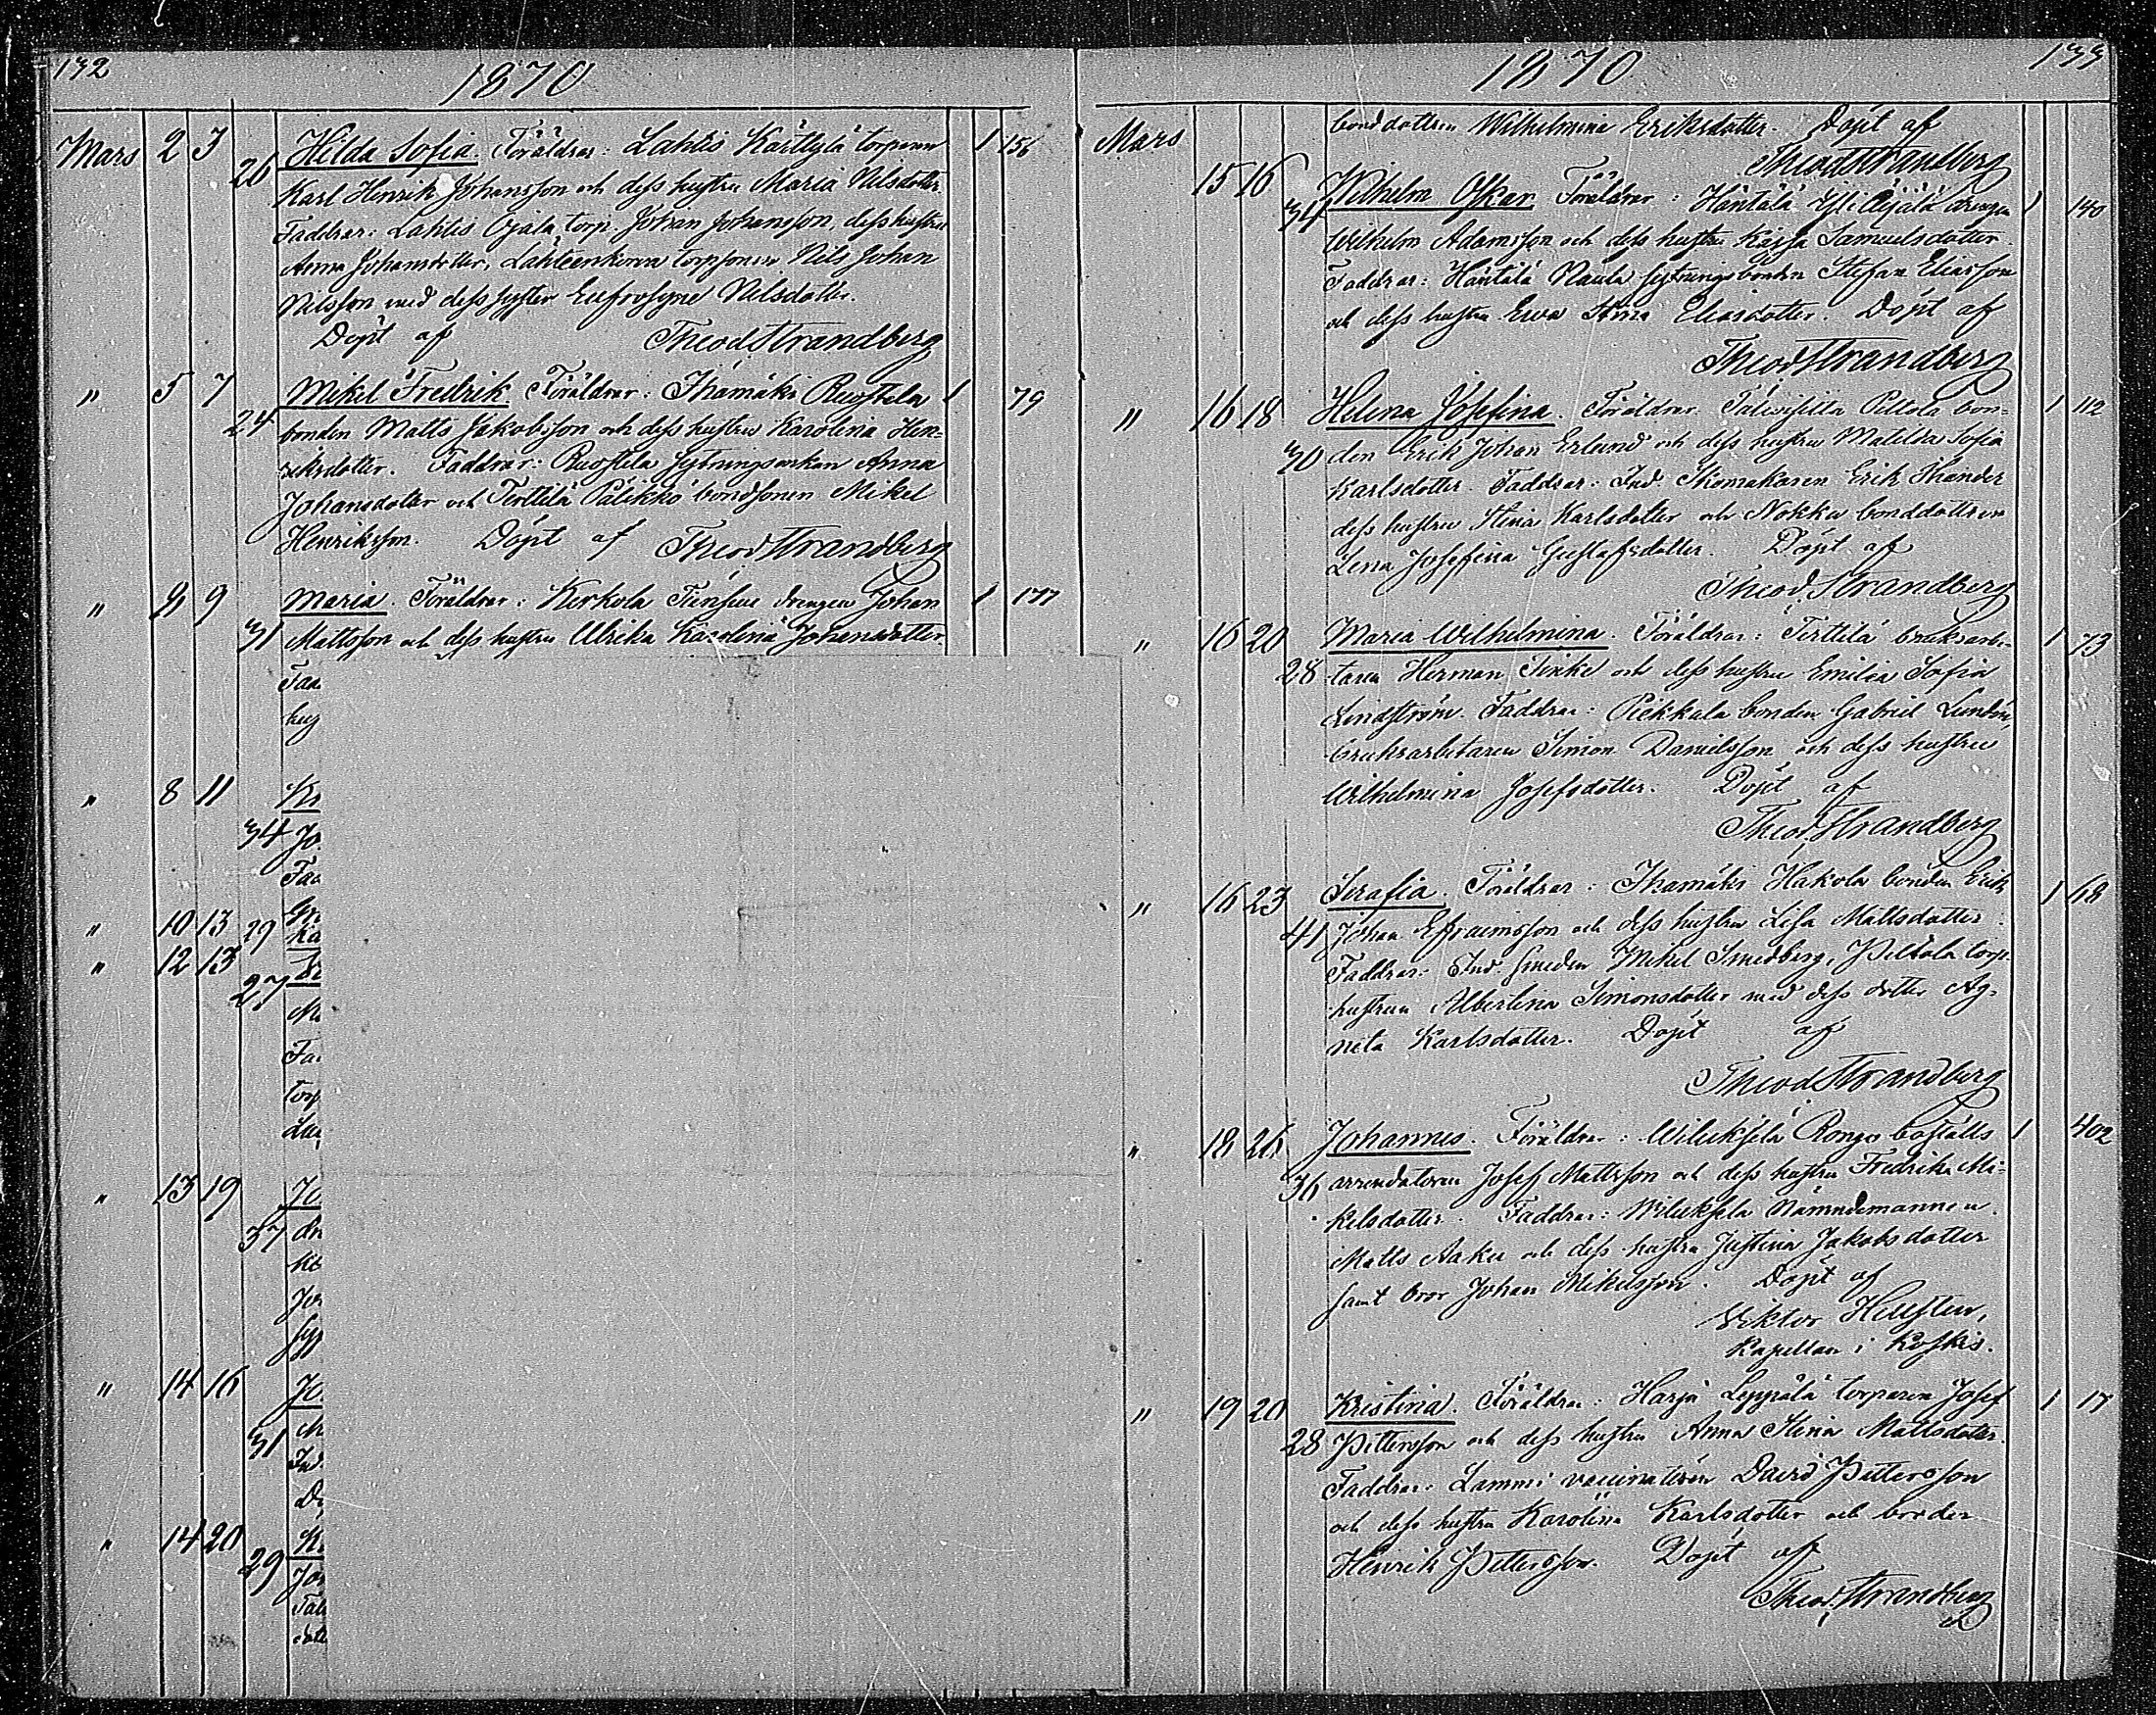 132
1870
Mars 2 3 26 Hilda Sofia. Föräldrar: Lahtis Kärtlylä torparen 1 156
Karl Henrik Johansson och dess hustru Maria Nilsdotter
Faddrar: Lahtis Ojala torp. Johan Johansson, dess hustru
Anna Johansdotter, Lähteenkorva torpsonen Nils Johan
Nilsson med dess syster Eufrosyne Nilsdotter.
Döpt af Theod Strandberg
" 5 7 24 Mikel Fredrik. Föräldrar: Ihamäki Ruostela 1 79
bonden Matts Jakobsson och dess hustru Karolina Hen-
riksdotter. Faddrar: Ruostela sytningsenkan Anna
Johansdotter och Terttilä Päikkö bondsonen Mikel
Henriksson. Döpt af Theod Strandberg
" 8 9 31 Maria. Föräldrar: Kerkola drengen Johan 1 177
Mattsson och dess hustru Ulrika Karolina Johansdotter.
Fad
hus
" 8 11 Kr
34 Jo
Fad
" 10 13 29
Ka
" 12 13 27
Ma
Fad
torp
" 13 19 Jo
37 dr
Ko
Jo
sys
" 14 16 Jo
31
Ind.
Dö
" 14 20
29 Jo
dott
133
1870
Mars bonddottren Wilhelmina Eriksdotter. Döpt af
Theod Strandberg
15 16 34 Wilhelm Oskar. Föräldrar: Häntälä Yli Äijälä drengen 1 140
Wilhelm Adamsson och dess hustru Kajsa Samuelsdotter.
Faddrar: Häntälä Naula sytningsbonden Stefan Eliasson
och dess hustru Ewa Stina Eliasdotter. Döpt af
Theod Strandberg
" 16 18 Helena Josefina. Föräldrar Talvisilta Peltola bon- 1 112
30 den Erik Johan Erlund och dess hustru Matilda Sofia
Karlsdotter. Faddrar: Ind. Skomakaren Erik Thander
dess hustru Stina Karlsdotter och Nokka bonddottren
Lena Josefina Gustafsdotter. Döpt af
Theod. Strandberg
" 16 20 Maria Wilhelmina. Föräldrar: Terttilä bruksarbe- 1 73
28 taren Herman Finke och dess hustru Emilia Sofia
Lindström. Faddrar: Piekkala bonden Gabriel Lundén,
bruksarbetaren Simon Danielsson och dess hustru
Wilhelmina Josefsdotter. Döpt af
Theod. Strandberg
" 16 23 Serafia. Föräldrar: Ihamäki Hakola bonden Erik 1 68
41 Johan Efraimsson och dess hustru Lisa Mattsdotter
Faddrar: Ind. smeden Mikel Smedberg, Peltola torp.
hustrun Albertina Simonsdotter med dess dotter Ag-
neta Karlsdotter. Döpt af
Theod Strandberg
" 18 26 Johannes. Föräldrar: Wiluksela Rongo boställs 1 402
36 arrendatorn Josef Mattsson och dess hustru Fredrika Mi-
kelsdotter. Faddrar: Wiluksela Nämndemannen
Matts Aaku och dess hustru Justina Jakobsdotter
samt bror Johan Mikelsson. Döpt af
Viktor Heusten,
Kapellan i Koskis.
" 19 20 Kristina. Föräldrar: Harja Leppälä torparen Josef 1 17
28 Pettersson och dess hustru Anna Stina Mattsdotter.
Faddrar: Lammi vaccinatören David Pettersson
och dess hustru Karolina Karlsdotter och broder
Henrik Pettersson. Döpt af
Theod. Strandberg